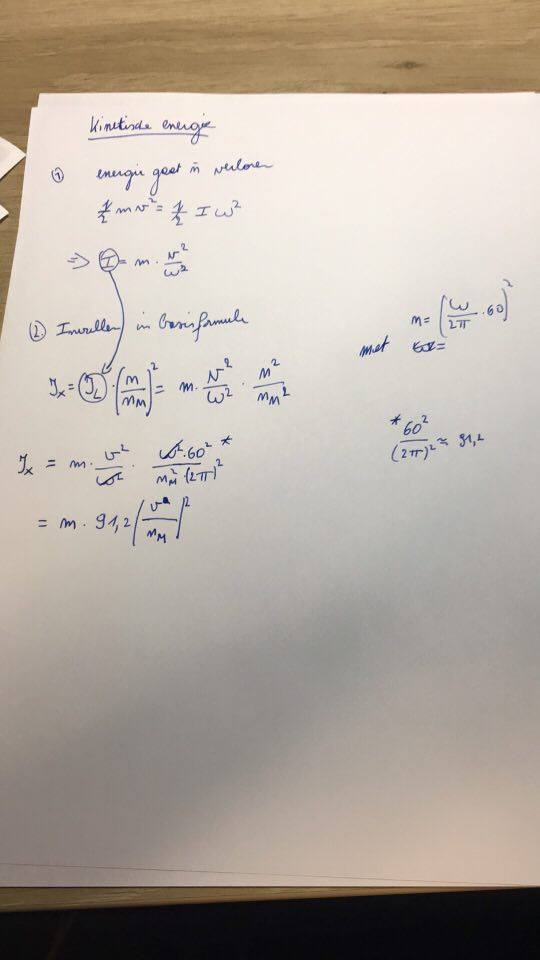 Kinetische energie
① energie gaat n̄ verloren
1/2 m v² = 1/2 I ω²
=> I = m · v²/ω²
②. Invullen in basisformule
n = (ω/2π · 60)²
met
Jx = JL · (n/nM)² = m · v²/ω² · n²/nM²
* 60²/(2π)² ≈ 91,2
Jx = m · v²/ω² · ω²·60²/nM²·(2π)² *
= m · 91,2 (v/nM)²